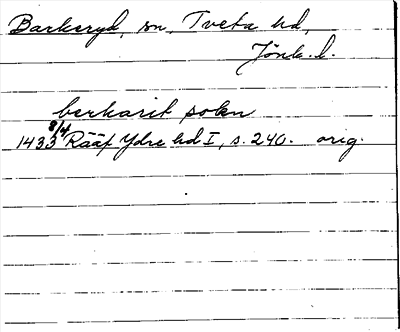 Barkeryd, sn, Tveta hd,
Jönk. l.
berkarit sokn
1433 8/4 Rääf Ydre hd I, s. 240. orig.